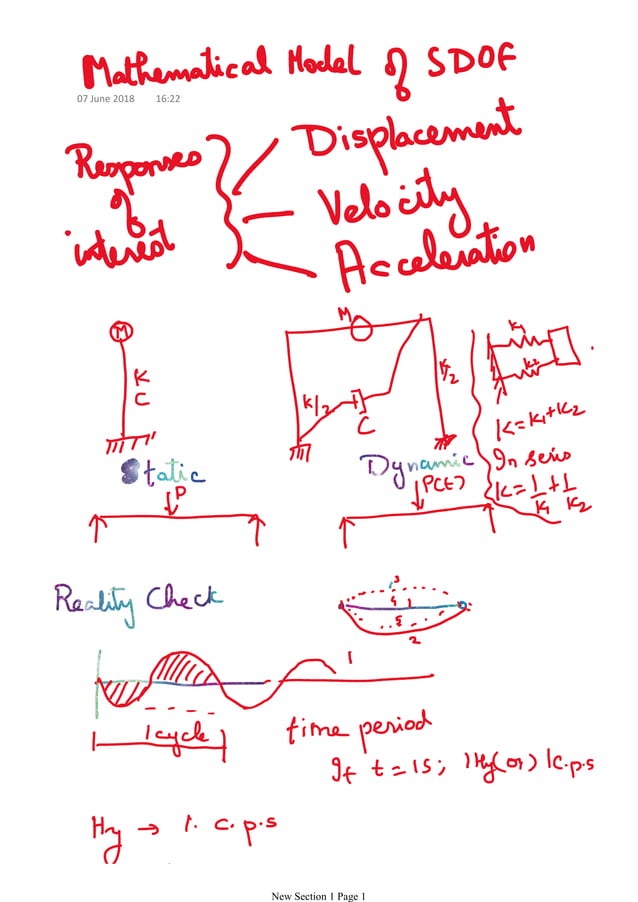 Mathematical Model of SDOF
07 June 2018 16:22
Responses of interest
Displacement
Velocity
Acceleration
M
K
C
M
K/2
C
K/2
K1
K2
K=K1+K2
In seris
K=1/K1+1/K2
Static
P
Dynamic
P(t)
Reality Check
3
4 1
5
2
1
1 cycle
time period
If t = 1s; 1Hz (or) 1c.p.s
Hz → 1. c.p.s
New Section 1 Page 1